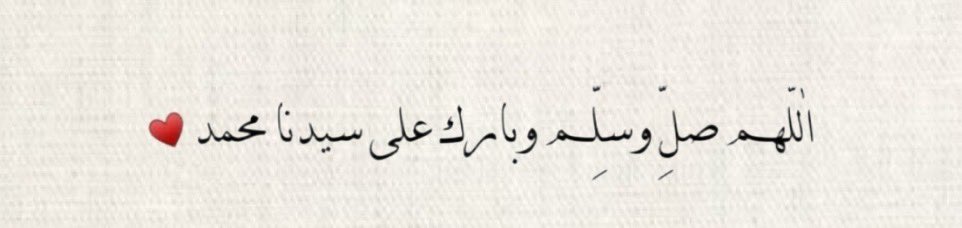 اللّهم صلِّ وسلِّم وبارك على سيدنا محمد ❤️